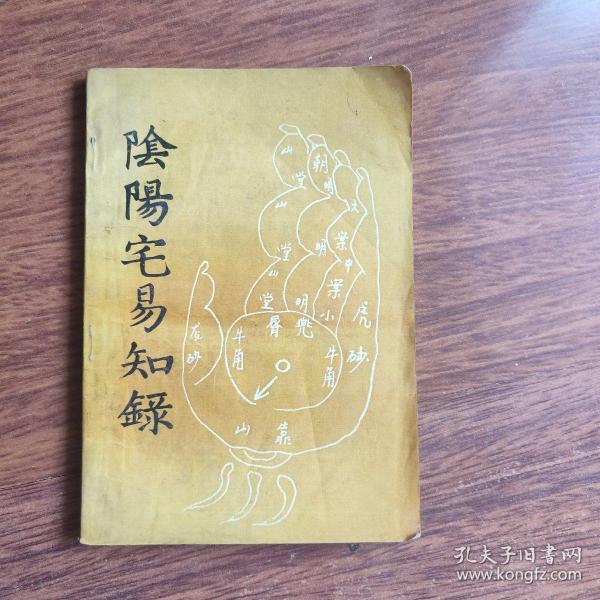 陰陽宅易知錄
山 朝
堂 明 大
山 案
堂 明 中
山 案
堂 明 小 虎
唇 兜
砂 牛角 牛角 砂
山 靠
孔夫子旧书网
www.kongfz.com